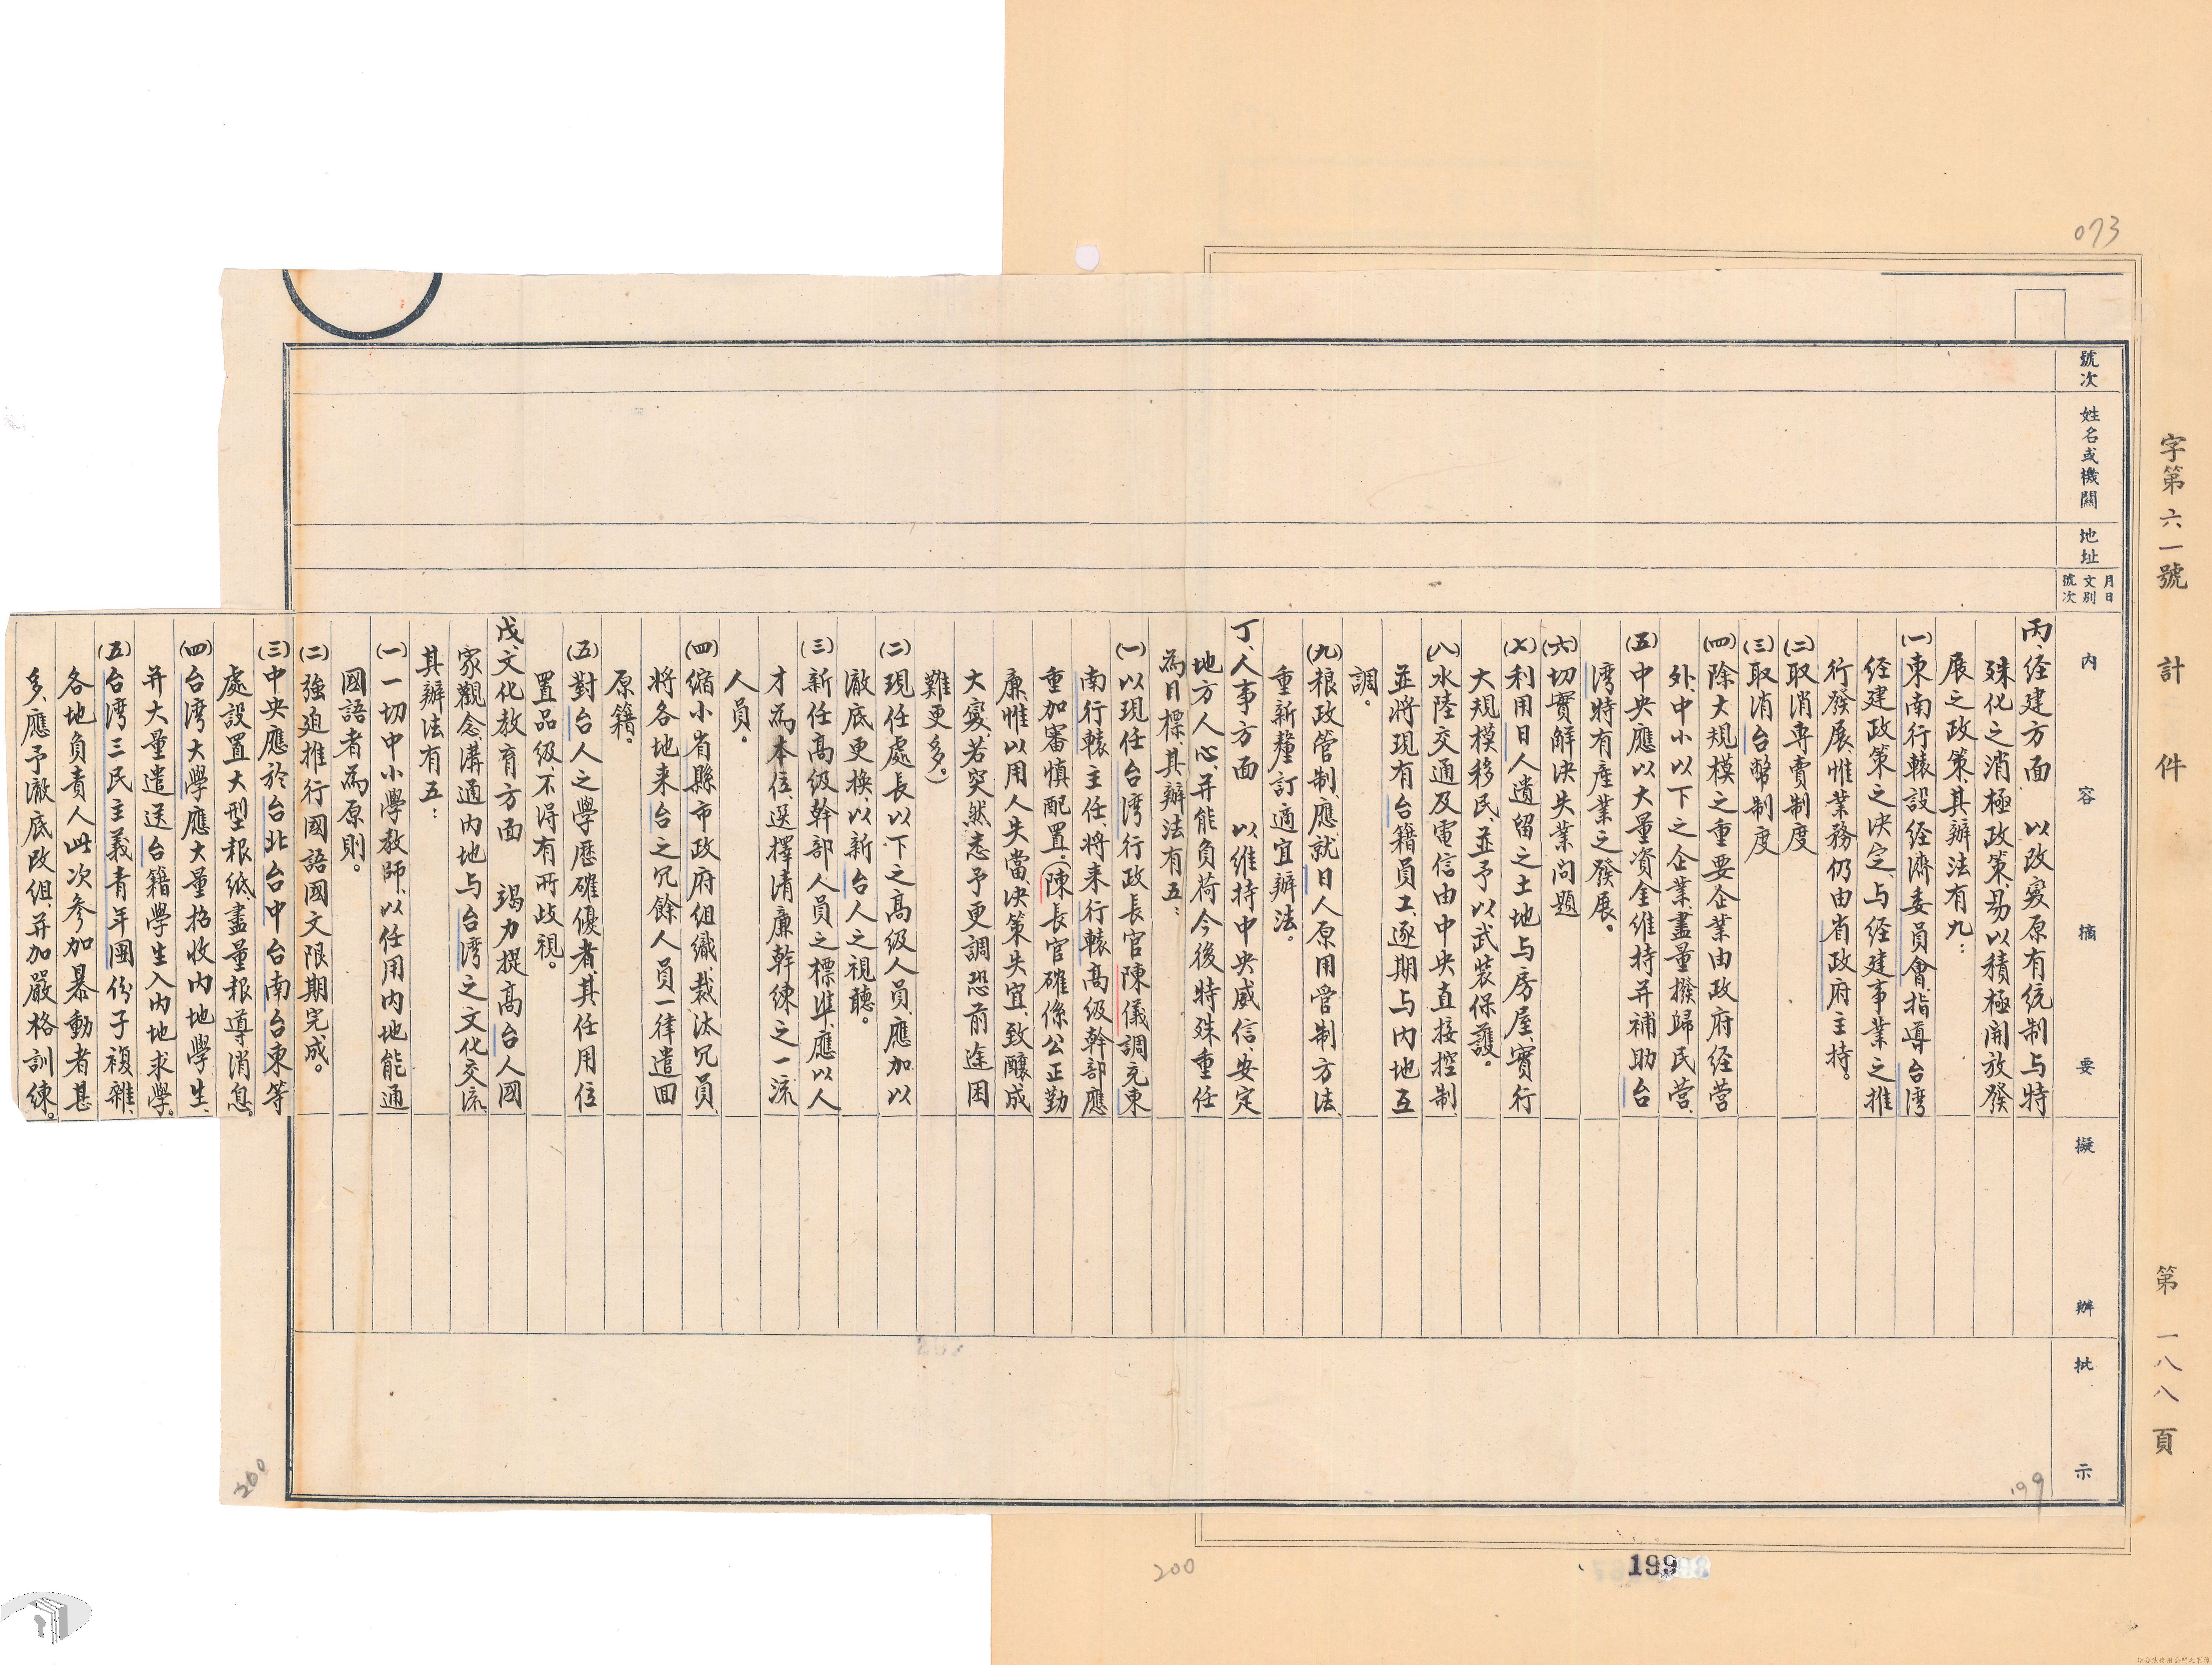 073
字第六一號 計 件 第一八八頁
號次
姓名或機關
地址
月日
文別
號次
內容摘要
擬辦
批示
丙、経建方面 以改変原有统制与特
殊化之消極政策、易以積極開放發
展之政策、其辦法有九：
(一)東南行轅設経濟委員會、指導台湾
経建政策之决定、与経建事業之推
行發展、惟業務仍由省政府主持。
(二)取消専賣制度
(三)取消台幣制度
(四)除大規模之重要企業由政府経营
外、中小以下之企業、盡量撥歸民营、
(五)中央應以大量資金維持并補助台
湾特有産業之發展。
(六)切實解决失業问題
(七)利用日人遺留之土地与房屋、實行
大規模移民、並予以武装保護。
(八)水陸交通及電信由中央直接控制、
並將現有台籍員工、逐期与內地互
調。
(九)粮政管制、應就日人原用管制方法、
重新釐訂適宜辦法。
丁、人事方面 以維持中央威信、安定
地方人心、并能負荷今後特殊重任
為目標、其辦法有五：
(一)以現任台湾行政長官陳儀調充東
南行轅主任、將來行轅高级幹部應
重加審慎配置。(陳長官確係公正勤
廉、惟以用人失當、决策失宜、致釀成
大変、若突然悉予更調恐前途困
難更多。)
(二)現任處長以下之高级人員、應加以
澈底更换、以新台人之視聽。
(三)新任高级幹部人員之標準、應以人
才為本位、选擇清廉幹練之一流
人員。
(四)缩小省縣市政府组織、裁汰冗員、
將各地来台之冗餘人員一律遣囬
原籍。
(五)對台人之學歴確優者、其任用位
置品级、不得有所歧視。
戊、文化教育方面 竭力提高台人國
家觀念、溝通內地与台湾之文化交流、
其辦法有五：
(一)一切中小學教師、以任用內地能通
國語者為原則。
(二)強迫推行國語國文限期完成。
(三)中央應於台北台中台南台東等
處設置大型報紙、盡量報導消息。
(四)台湾大學應大量招收內地學生、
并大量遣送台籍學生入內地求學。
(五)台湾三民主義青年團份子複雜、
各地負責人此次参加暴動者甚
多、應予澈底改组、并加嚴格訓練。
199
200
200
199
請合法使用公開之影像